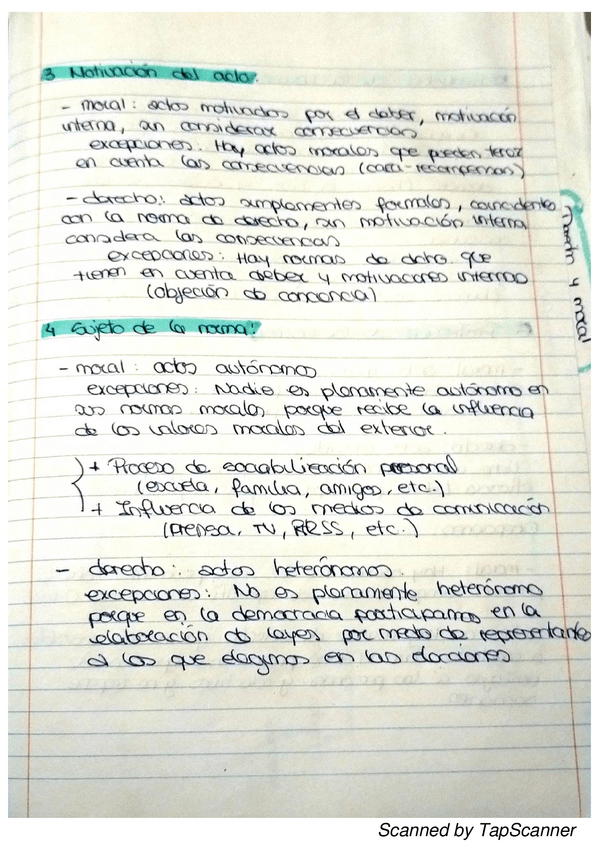 3 Motivación del acto.
- moral: actos motivados por el deber, motivación
interna, sin considerar consecuencias.
excepciones: Hay actos morales que pueden tener
en cuenta las consecuencias (cast-recompensas)
- derecho: actos simplamentes formales, coincidentes
con la norma de derecho, sin motivación interna
considera las consecuencias
excepciones: Hay normas de dcho. que
tienen en cuenta deber y motivaciones internas
(objeción de conciencia)
Derecho y moral
4 Sujeto de la norma:
- moral: actos autónomos
excepciones: Nadie es planamente autónomo en
sus normas morales porque recibe la influencia
de los valores morales del exterior.
+ Proceso de sociabilización personal
(escuela, familia, amigos, etc.)
+ Influencia de los medios de comunicación
(prensa, TV, RRSS, etc.)
- derecho: actos heterónomos
excepciones: No es planamente heterónomo
porque en la democracia participamos en la
elaboración de leyes por medio de representantes
a los que elegimos en las elecciones
Scanned by TapScanner